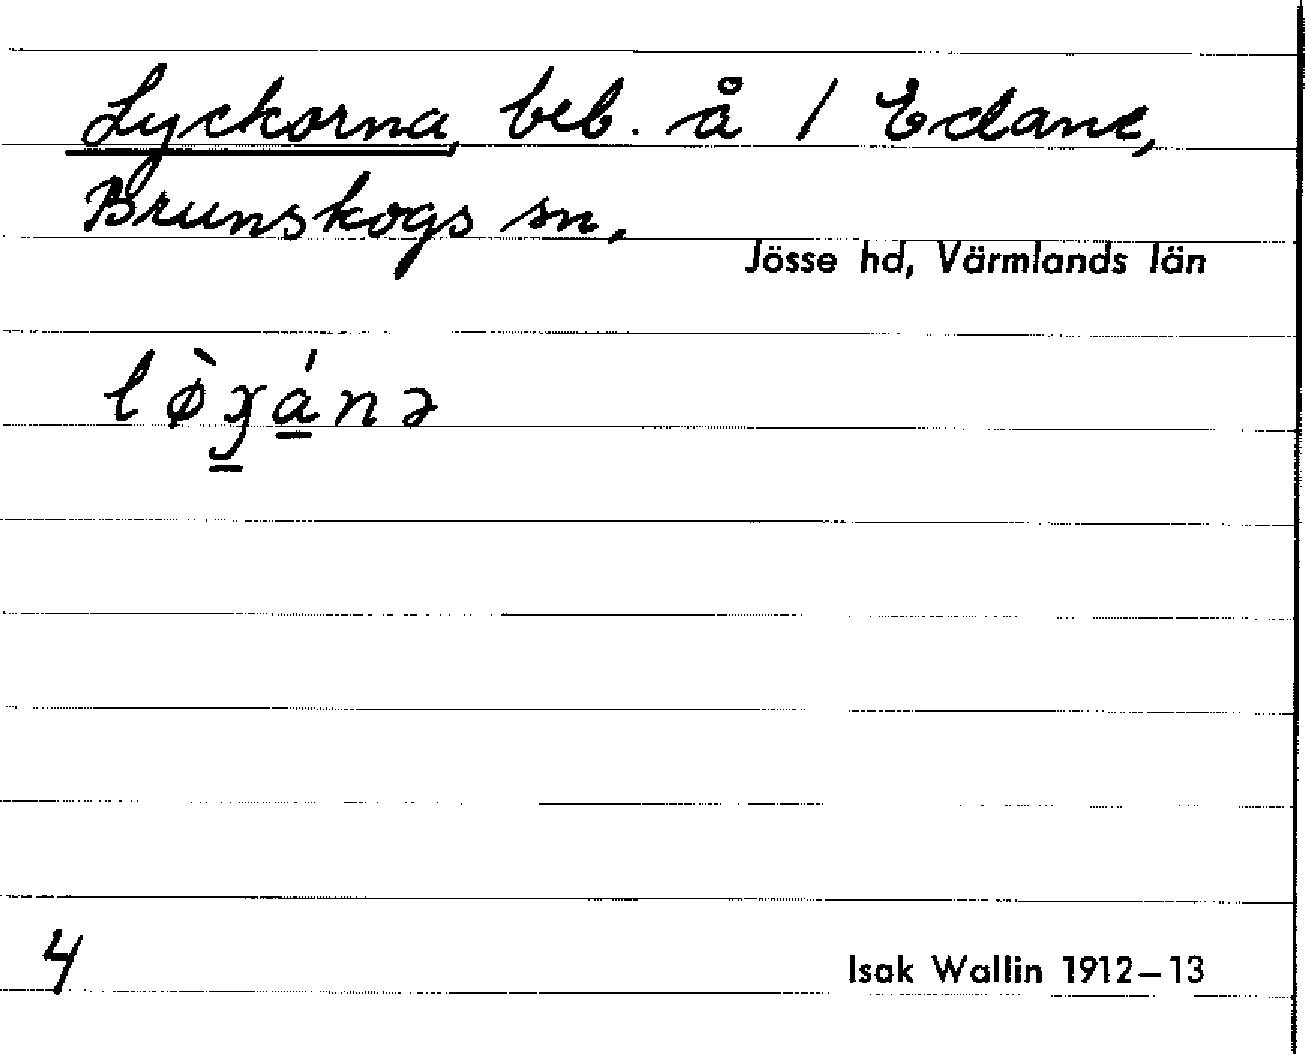 Lyckorna, beb. å / Edane,
Brunskogs sn,
Jösse hd, Värmlands län
4
Isak Wallin 1912–13